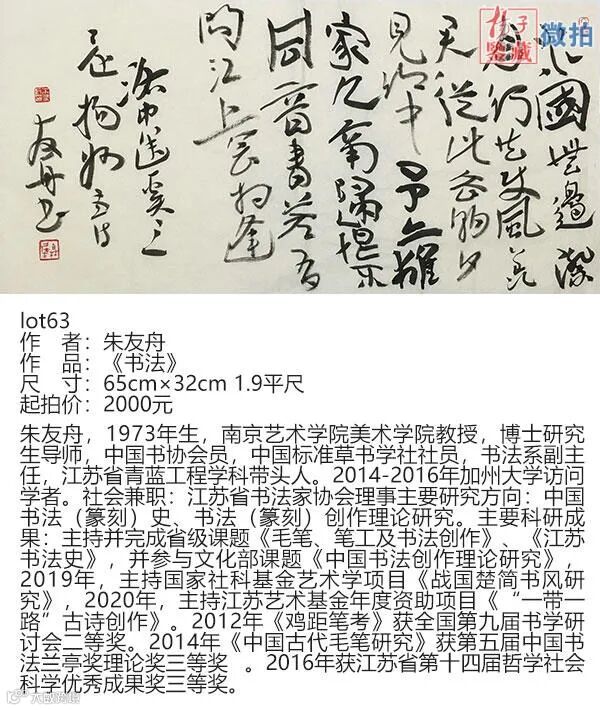 扬子鉴藏
微拍
水國無邊際
舟行共使風羨
君從此去朝夕
見鄉中予亦離
家久南歸恨不
同音書若有
問江上會相逢
洛中送奚三
還揚州
友舟书
lot63
作 者：朱友舟
作 品：《书法》
尺 寸：65cm×32cm 1.9平尺
起拍价：2000元
朱友舟，1973年生，南京艺术学院美术学院教授，博士研究
生导师，中国书协会员，中国标准草书学社社员，书法系副主
任，江苏省青蓝工程学科带头人。2014-2016年加州大学访问
学者。社会兼职：江苏省书法家协会理事主要研究方向：中国
书法（篆刻）史、书法（篆刻）创作理论研究。主要科研成
果：主持并完成省级课题《毛笔、笔工及书法创作》、《江苏
书法史》，并参与文化部课题《中国书法创作理论研究》，
2019年，主持国家社科基金艺术学项目《战国楚简书风研
究》，2020年，主持江苏艺术基金年度资助项目《“一带一
路”古诗创作》。2012年《鸡距笔考》获全国第九届书学研
讨会二等奖。2014年《中国古代毛笔研究》获第五届中国书
法兰亭奖理论奖三等奖 。2016年获江苏省第十四届哲学社会
科学优秀成果奖三等奖。